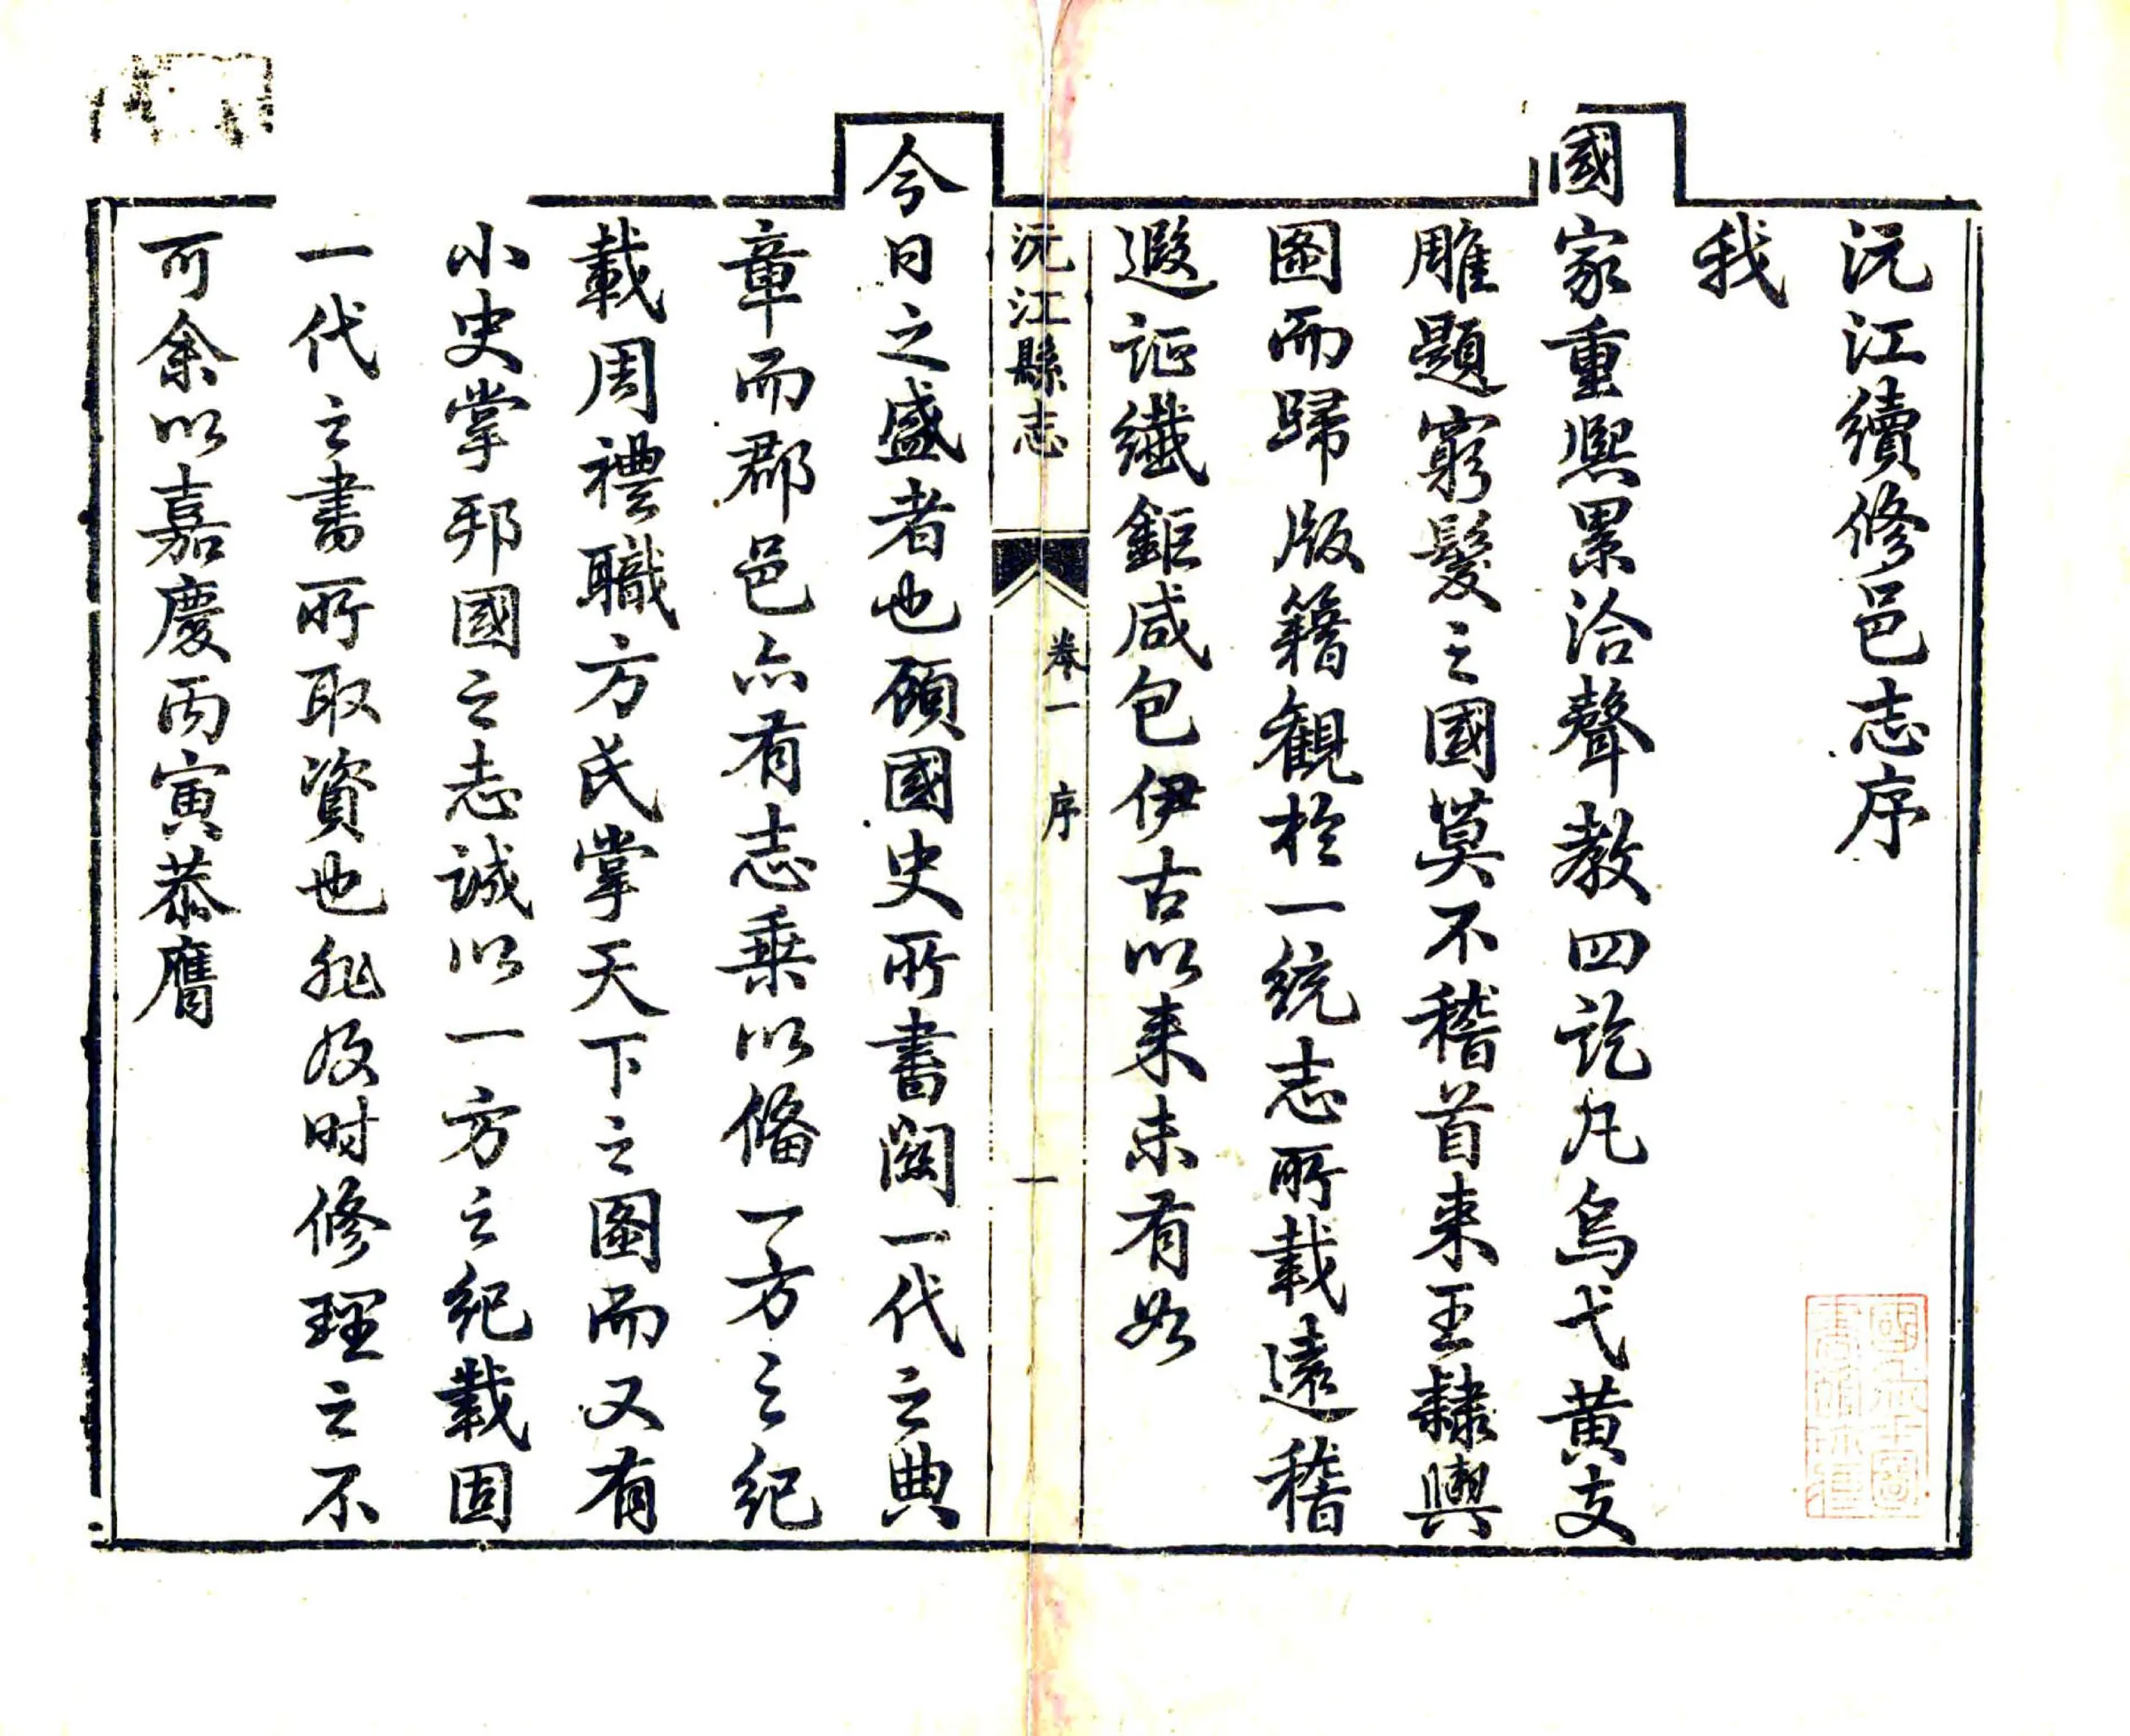 沅江續修邑志序
我
國家重熙累洽聲教四訖凡烏弋黃支
雕題窮髮之國莫不稽首来王隸輿
圖而歸版籍観於一統志所載遠稽
遐証纖鉅咸包伊古以来未有如
沅江縣志
卷一
序
一
今日之盛者也顧國史所書闗一代之典
章而郡邑亦有志乗以偹一方之紀
載周禮職方氏掌天下之圖而又有
小史掌邦國之志誠以一方之紀載固
一代之書所取資也非及时修理之不
可余以嘉慶丙寅恭膺